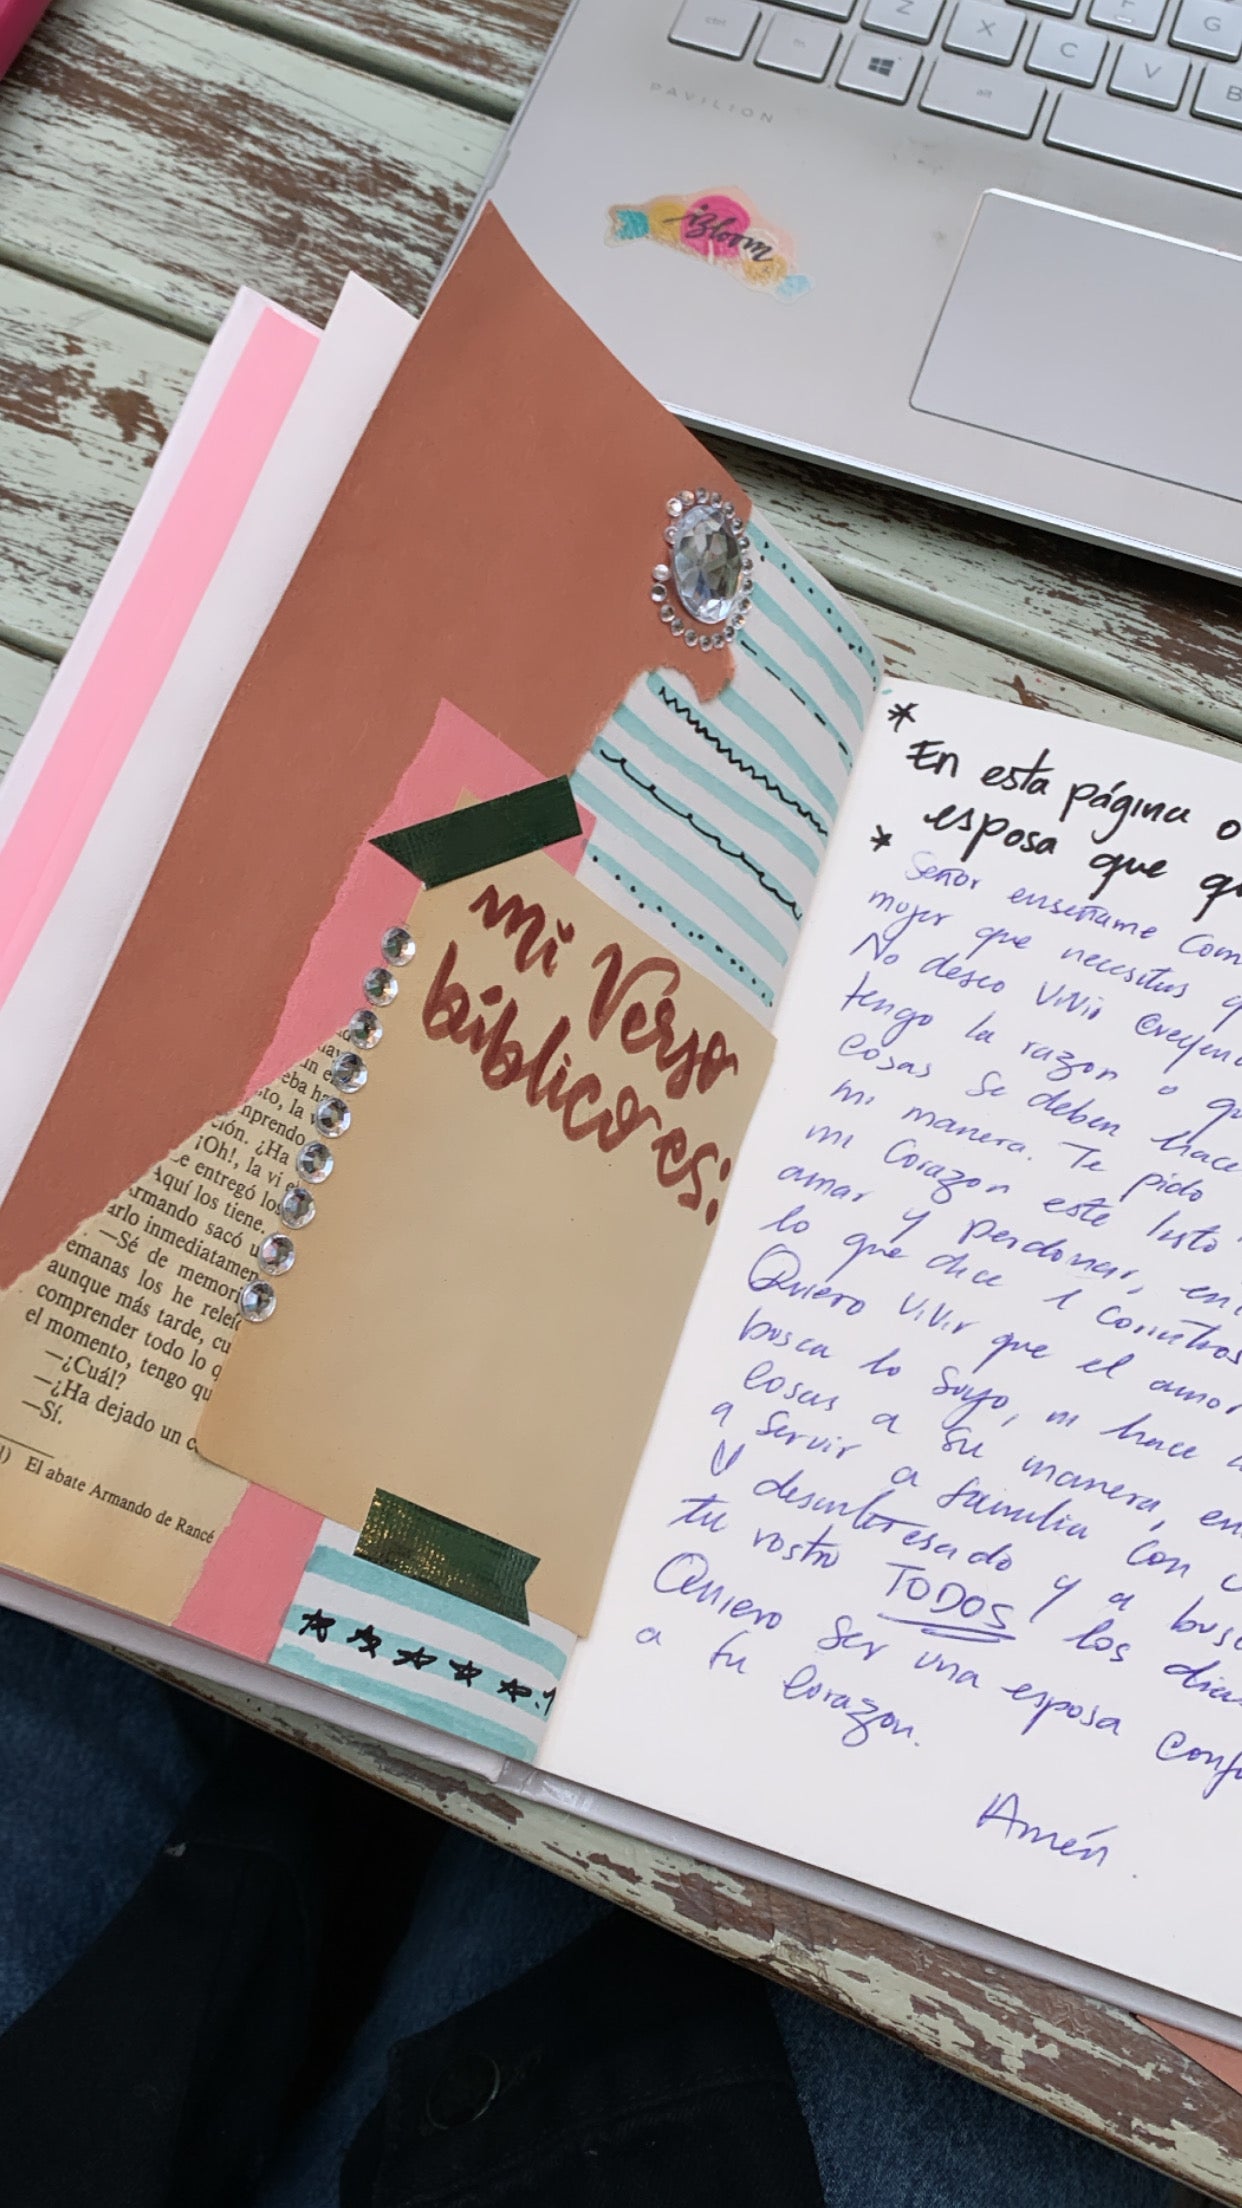 ctrl
fn
alt
Z
X
C
V
B
F
G
PAVILION
izloom
mi Verso
bíblico es:
ción. ¿Ha
¡Oh!, la vi
Le entregó los
Aquí los tiene.
Armando sacó
arlo inmediatamen
—Sé de memori
emanas los he releí
aunque más tarde, cu
comprender todo lo q
el momento, tengo qu
—¿Cuál?
—¿Ha dejado un c
—Sí.
El abate Armando de Rancé
* En esta página o
esposa que qu
* Señor enseñame Com
mujer que necesitas q
No deseo vivir Creyen
tengo la razon o qu
cosas se deben hace
mi manera. Te pido
mi Corazon este
amar y perdonar, en
lo que dice 1 Corintios
Quiero vivir que el amor
busca lo suyo, ni hace
cosas a su manera, en
a servir a familia con
y desinteresado y a busc
tu rostro TODOS los dias
Quiero ser una esposa Conf
a tu Corazon.
Amén.